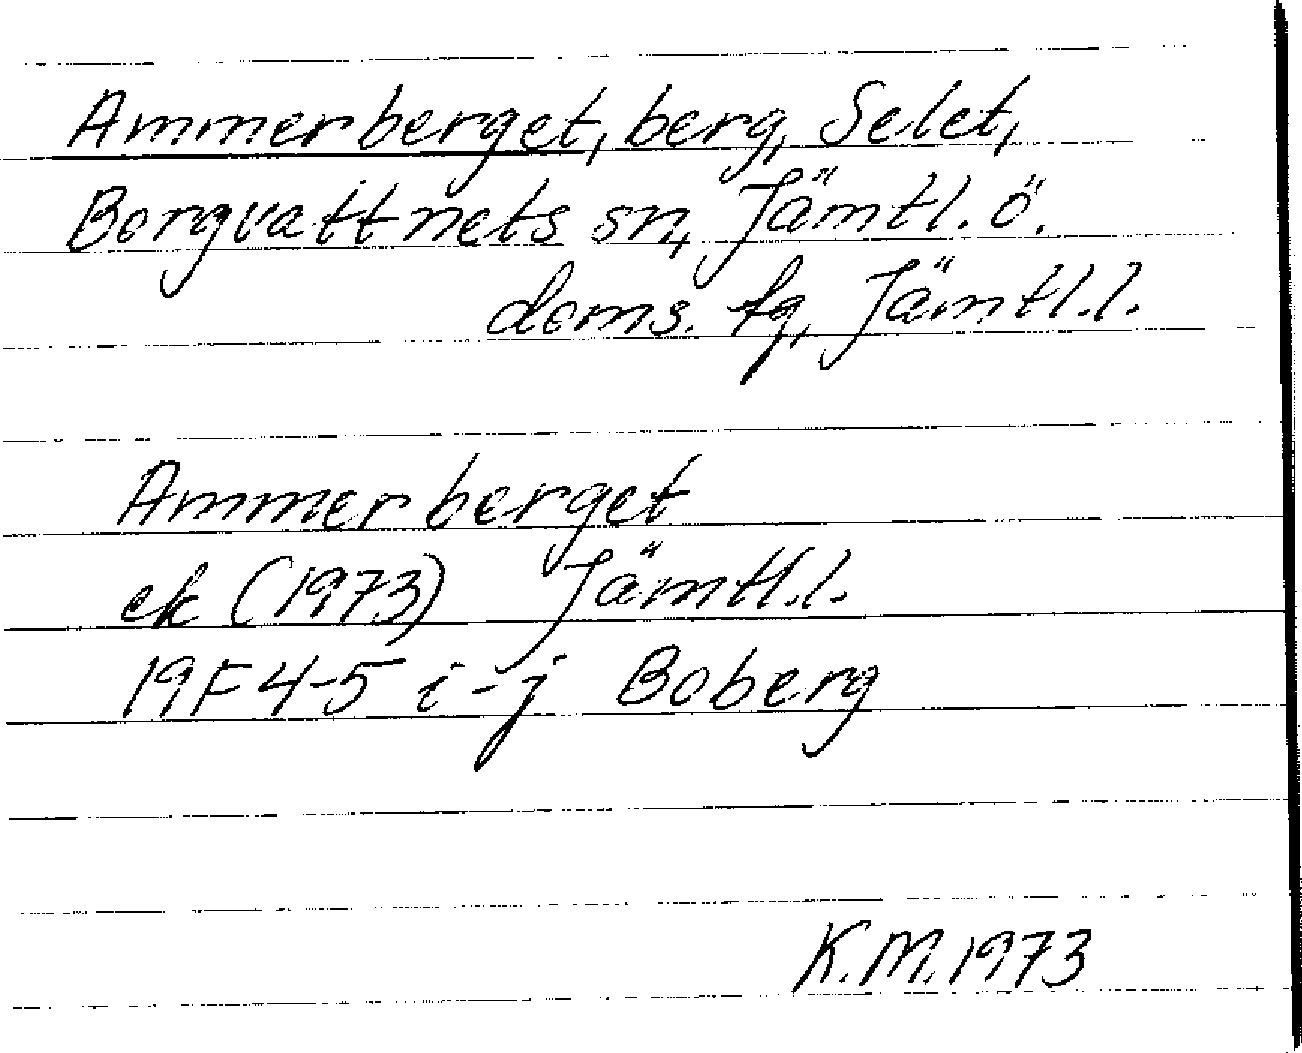 Ammerberget, berg, Selet,
Borgvattnets sn, Jämtl. ö.
doms. fg, Jämtl.l.
Ammerberget
ek (1973) Jämtl.l.
19F 4-5 i-j Boberg
K.M. 1973